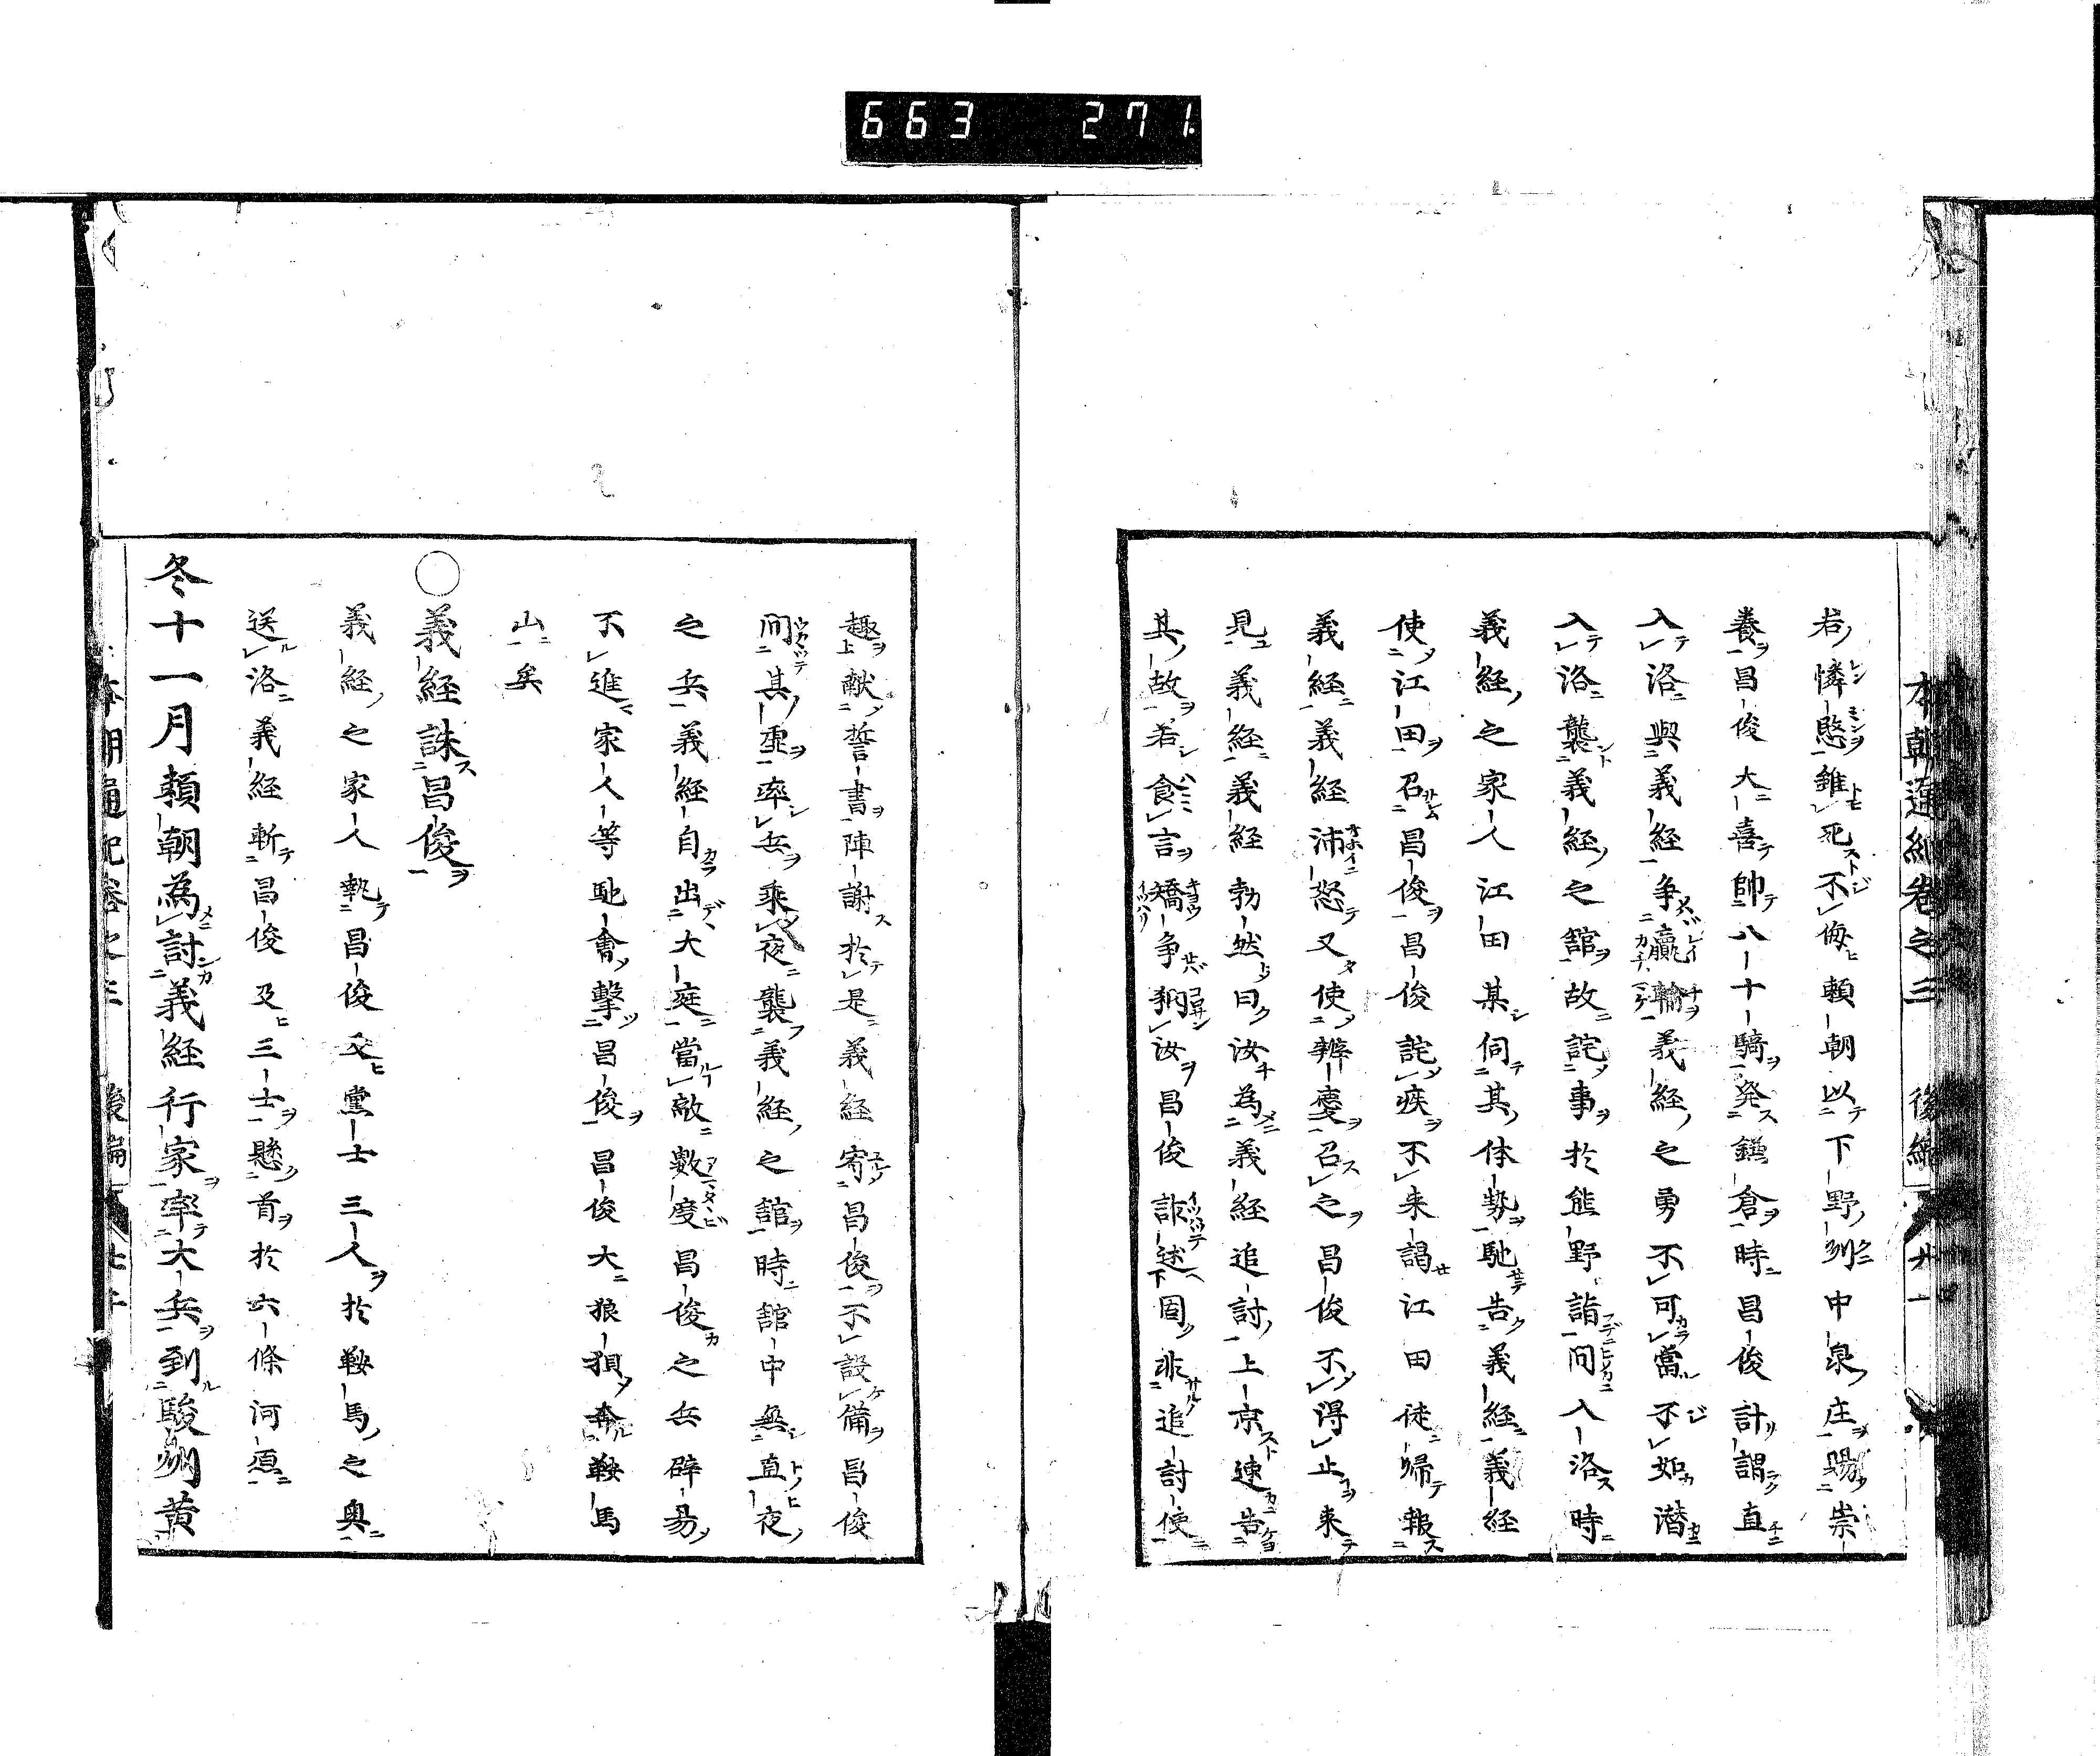 663 271
本朝通紀卷之三 後編 廿一
君憐愍雖死不侮頼朝以下野列中泉庄賜崇
養昌俊大喜帥八十騎発鎌倉時昌俊計謂直
入洛與義経争贏輸義経之勇不可當不如潜
入洛襲義経之館故詫事於熊野詣問入洛時
義経之家人江田某伺其体勢馳告義経義経
使江田召昌俊昌俊詫疾不来謁江田徒帰報
義経義経沛怒又使辨慶召之昌俊不得止来
見義経義経勃然曰汝為義経追討上京速告
其故若食言矯争豿汝昌俊詐述下固非追討使
趣献誓書陣謝於是義経寄昌俊不設備昌俊
間其虚率兵乘夜襲義経之館時館中無直夜
之兵義経自出大庭當敵數度昌俊之兵辟易
不進家人等馳會擊昌俊昌俊大狼狽奔鞍馬
山矣
○義経誅昌俊
義経之家人執昌俊及黨士三人於鞍馬之奥
送洛義経斬昌俊及三士懸首於六條河原
冬十一月頼朝為討義経行家率大兵到駿州黄
本朝通紀卷之三 後編